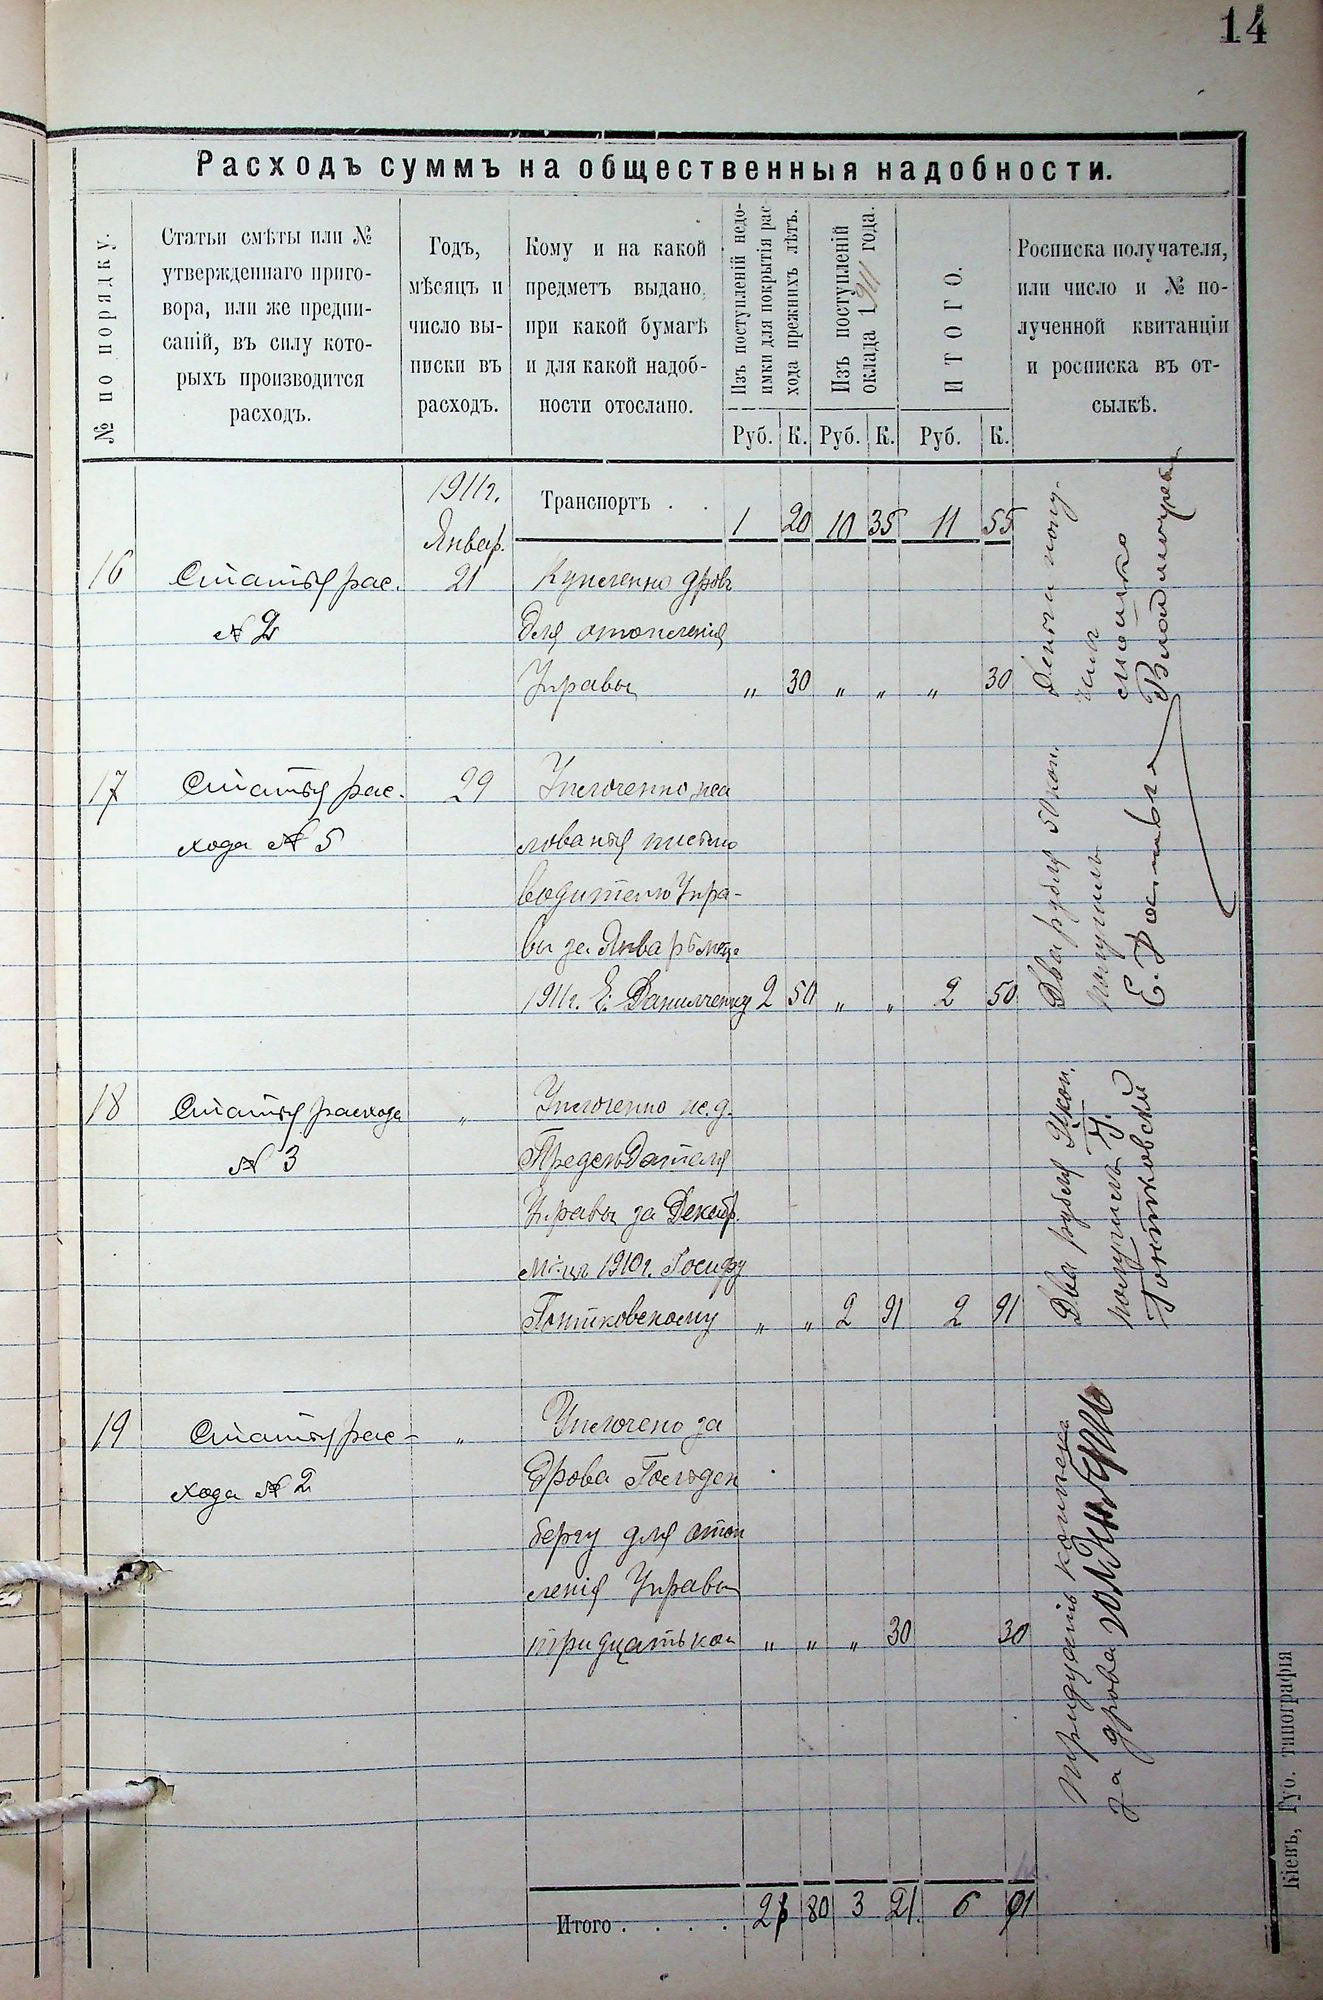 14
Расходъ суммъ на общественныя надобности.
№ по порядку.
Статьи смѣты или №
утвержденнаго приго-
вора, или же предпи-
саній, въ силу кото-
рыхъ производится
расходъ.
Годъ,
мѣсяцъ и
число вы-
писки въ
расходъ.
Кому и на какой
предметъ выдано,
при какой бумагѣ
и для какой надоб-
ности отослано.
Изъ поступленій недо-
имки для покрытія рас-
хода прежнихъ лѣтъ.
Изъ поступленій
оклада 1911 года.
ИТОГО.
Росписка получателя,
или число и № по-
лученной квитанціи
и росписка въ от-
сылкѣ.
Руб. К. Руб. К. Руб. К.
1911г.
Январ.
Транспортъ . . 1 20 10 35 11 55
16 Статья рас. 21 Купленно дровъ
№ 2 для отопленія
Управы " 30 " " " 30
Деньги полу-
чилъ
17 Статья рас- 29 Уплоченно жа
хода № 5 лованья письмо
водителю Упра-
вы за Январь м-цъ
1911г. Е. Данилченку 2 50 " " 2 50
Два рубля 50 коп.
получилъ
Е.
18 Статья расхода " Уплоченно и.д.
№ 3 Предсѣдателя
Управы за Декабр.
м-цъ 1910г. Іосифу
Гонтковскому " " 2 91 2 91
Два рубля 91 коп.
получилъ
Гонтковскій
19 Статья рас- " Уплочено за
хода № 2 дрова Гольден
бергу для отоп
ленія Управы
тридцать коп " " " 30 30
Тридцать копѣекъ
за дрова
Итого . . . . 2 80 3 21 6 01
Кіевъ, Губ. типографія